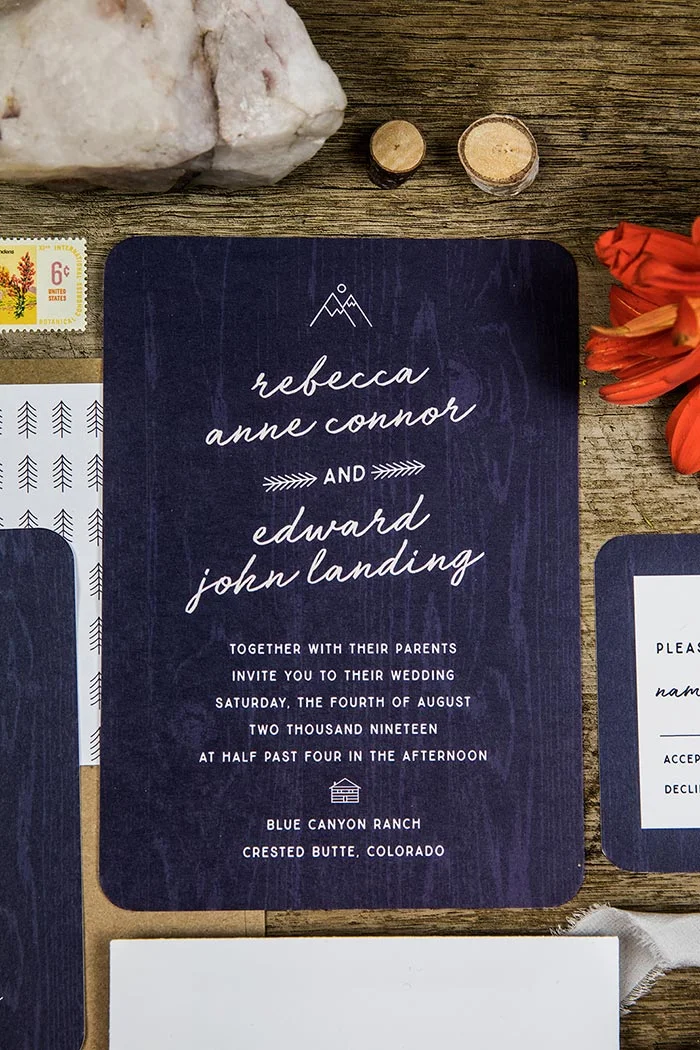 6¢
UNITED
STATES
BOTANICAL
rebecca
anne connor
AND
edward
john landing
TOGETHER WITH THEIR PARENTS
INVITE YOU TO THEIR WEDDING
SATURDAY, THE FOURTH OF AUGUST
TWO THOUSAND NINETEEN
AT HALF PAST FOUR IN THE AFTERNOON
BLUE CANYON RANCH
CRESTED BUTTE, COLORADO
PLEAS
nam
ACCEP
DECLI